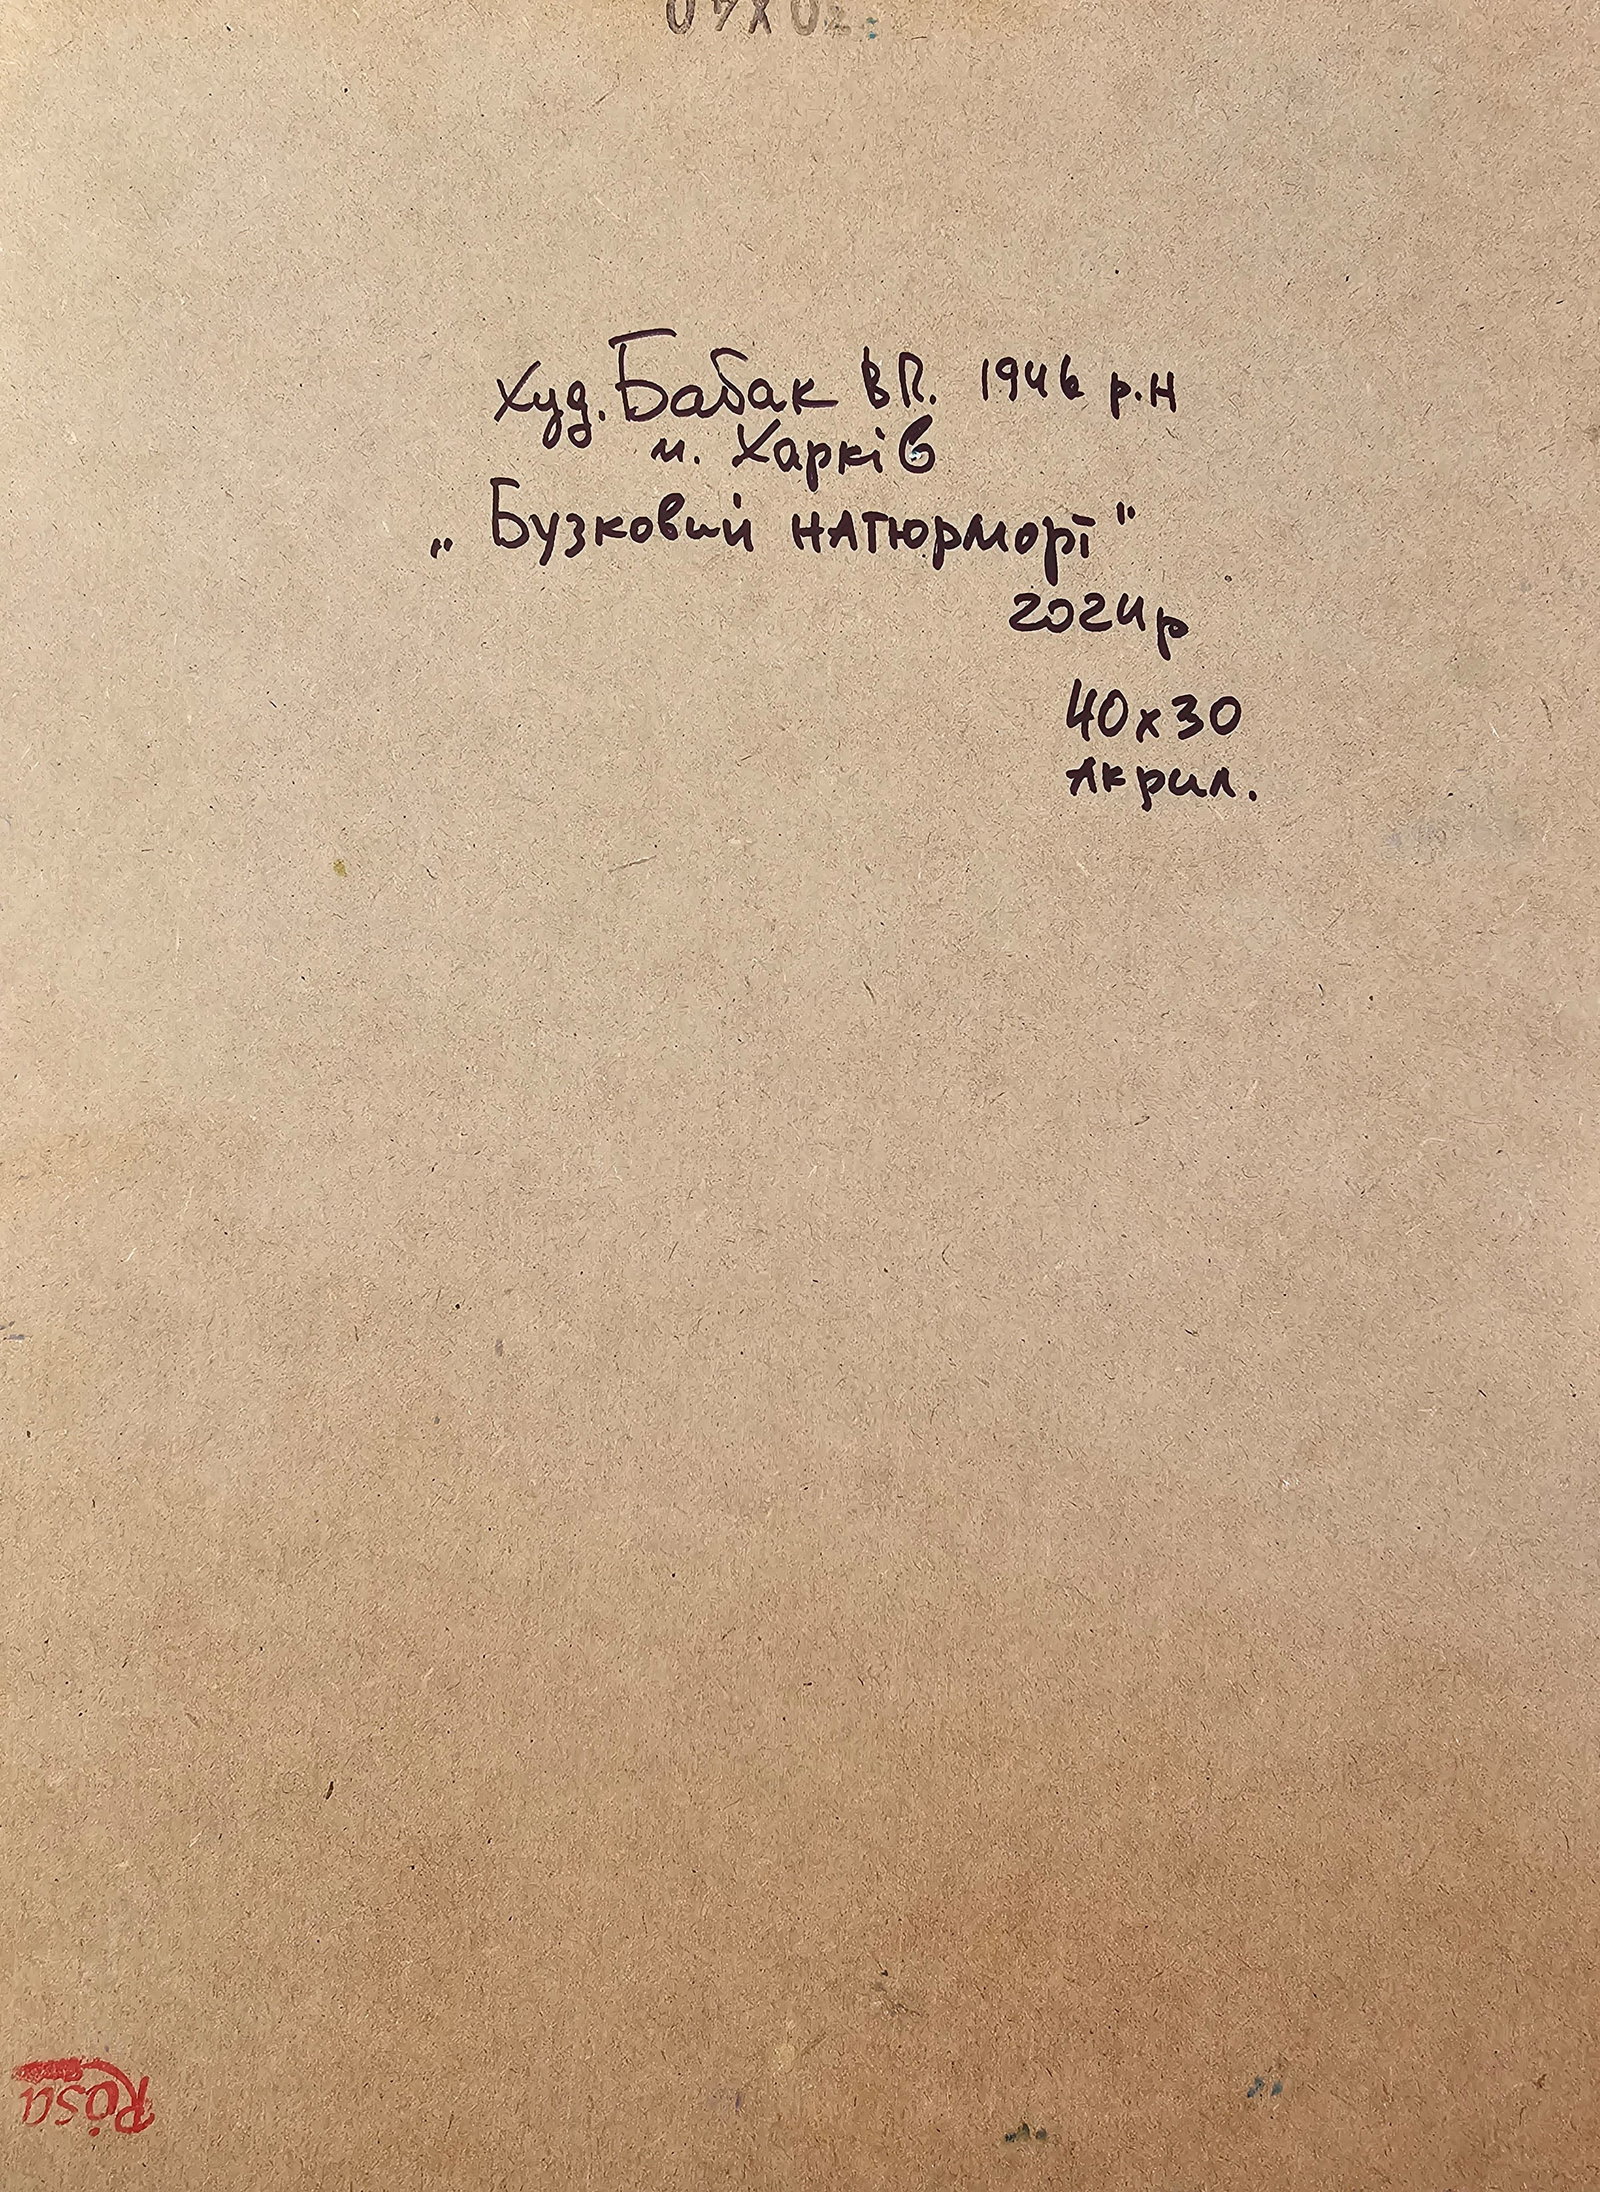 Худ. Бабак В П. 1946 р.н
м. Харків
„Бузковий натюрморт"
2024р
40х30
Акрил.
Rosa